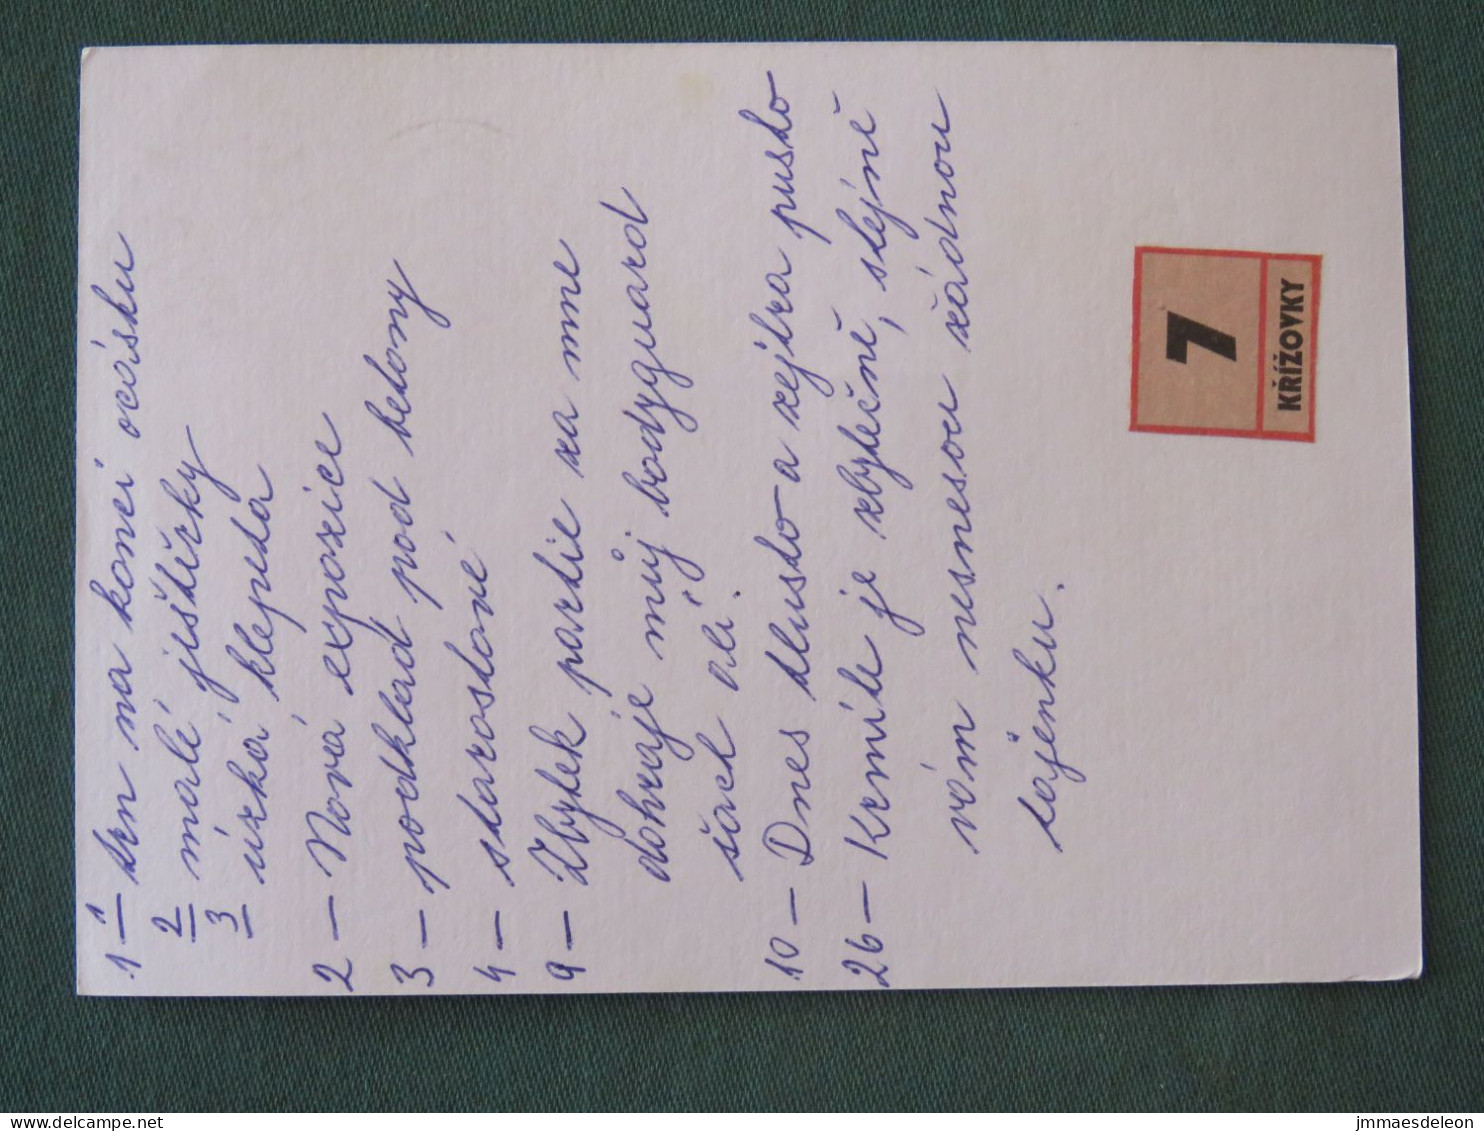 1 – 1 trn na konci ocásku
2 malé ještěrky
3 úzká klepeta
2 – Nová expozice
3 – podklad pod betony
4 – starostové
9 – Zbytek partie za mne
dohraje můj bodyguard
šach ali.
10 – Dnes tlusto a zejtra pusto
26 – Krmíte je zbytečně, stejně
vám nesnesou žádnou
tajenku.
7
KŘÍŽOVKY
www.delcampe.net
jmmaesdeleon